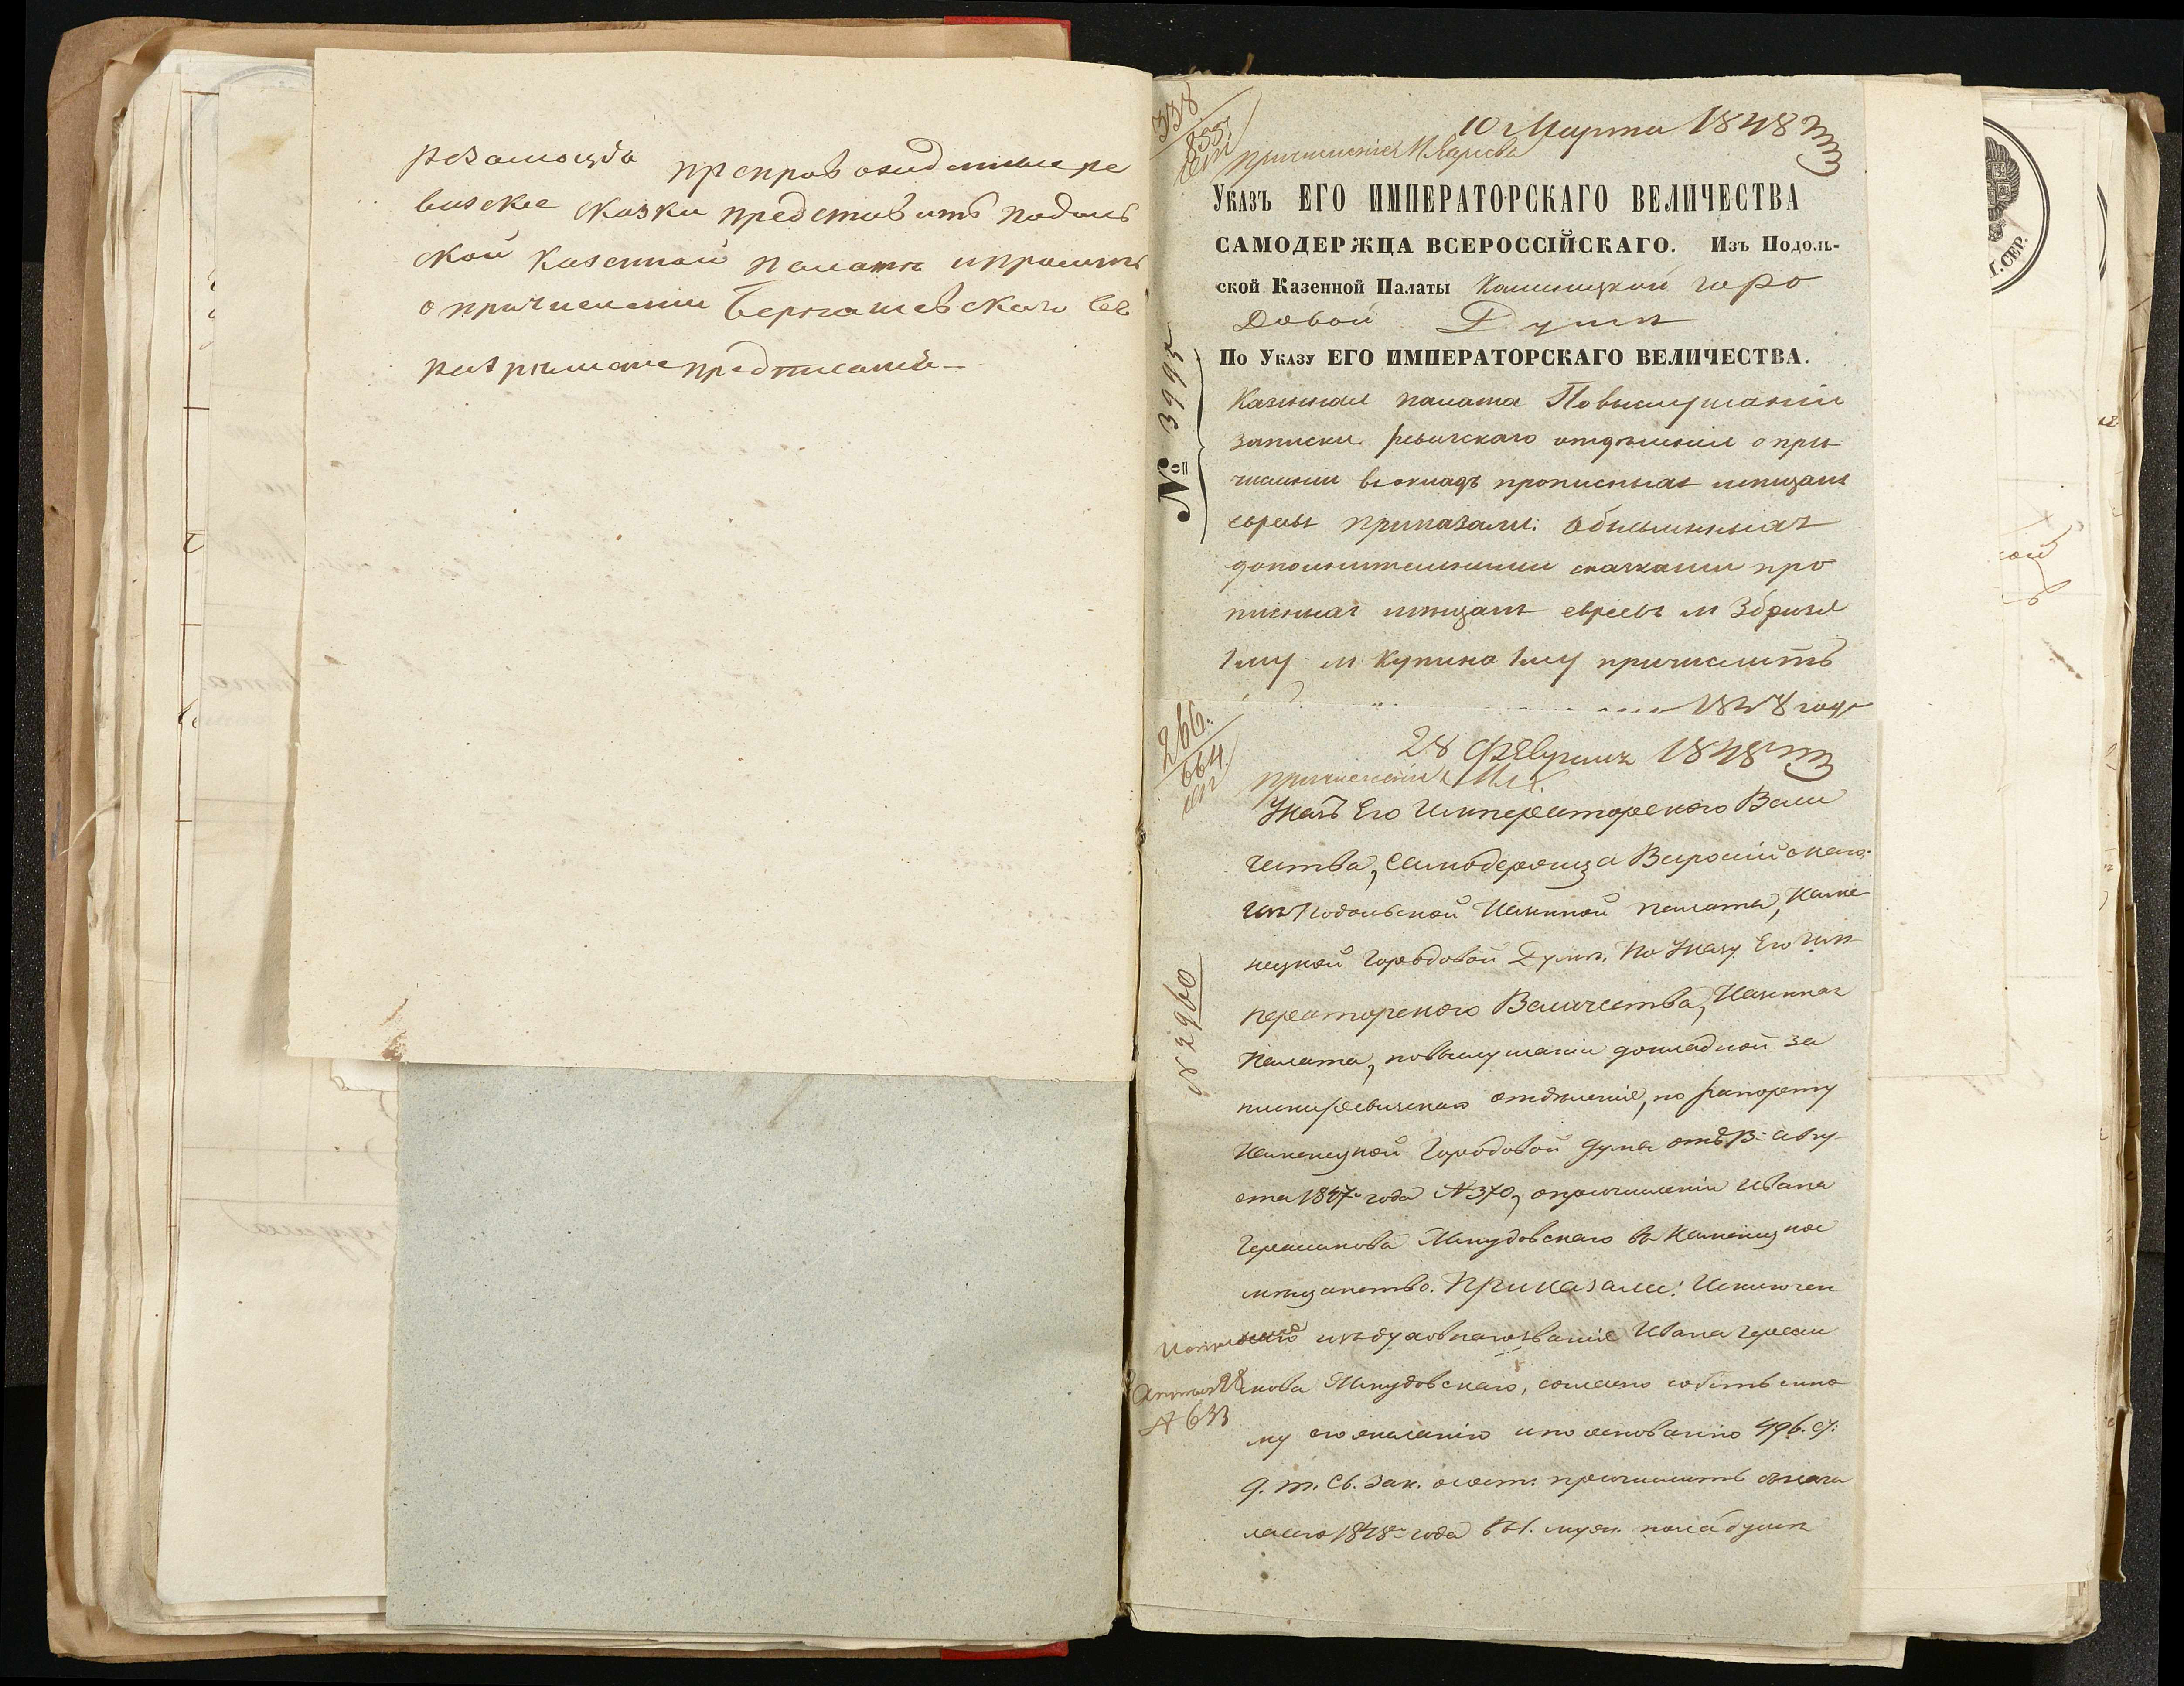 препровожденные ре
визские сказки представить Подоль
ской Казенной Палате и просить
о причислении
предписания
338
855
10 Марта 1848
Указъ ЕГО ИМПЕРАТОРСКАГО ВЕЛИЧЕСТВА
САМОДЕРЖЦА ВСЕРОССІЙСКАГО. Изъ Подоль-
ской Казенной Палаты Каменецкой горо
довой Думѣ
По Указу ЕГО ИМПЕРАТОРСКАГО ВЕЛИЧЕСТВА.
№ 3995
Казенная палата По выслушаніи
записки ревизскаго отдѣленія о при
численіи въ окладъ прописныхъ мѣщанъ
евреевъ приказали: Объявленныхъ
дополнительными сказками про
писныхъ мѣщанъ евреевъ м Збризя
1 му м Купина 1 му причислить
1848 году
266.
664
28 Февраля 1848
причисленія
Указъ Его Императорского Вели
чества, Самодержца Всероссійскаго
изъ Подольской Казенной палаты, Каме
нецкой Городовой Думѣ. По Указу Его Им
ператорского Величества, Казенная
№ 2960
Палата, по выслушаніи докладной за
писки ревизскаго отдѣленія, по рапорту
Каменецкой Городовой Думы отъ 13 авгу
ста 1847 года № 370, о причисленіи Ивана
Герасимова Мкудовскаго въ Каменецкое
мѣщанство. Приказали: Исключен
наго изъ духовнаго званія Ивана Гераси
мова Мкудовскаго, согласно собственно
му его желанію и по основанію 496. ст:
9. т. Св. Зак. о сост. причислить съ нача
ла сего 1848 года въ 1. муж. пола душѣ